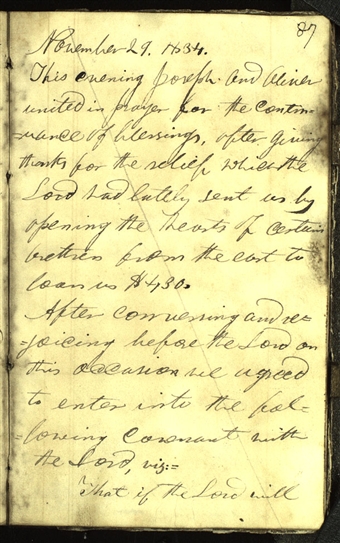 87
November 29. 1834.
This evening Joseph and Oliver
united in prayer for the contin-
=uance of blessings, after giving
thanks for the relief which the
Lord had lately sent us by
opening the hearts of certain
brethren from the east to
loan us $430.
After conversing and re=
=joicing before the Lord on
this occasion we agreed
to enter into the fol-
=lowing covenant with
the Lord, viz:=
That if the Lord will